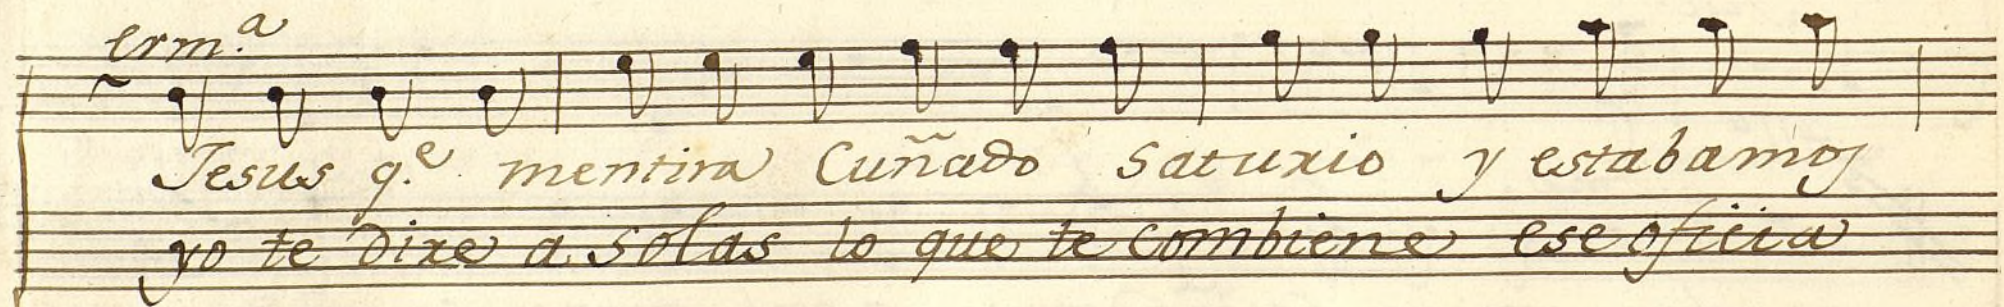 erm.ª
Jesus q.ᵉ mentira Cuñado Saturio y estabamos
yo te dire a solas lo que te combiene ese oficia